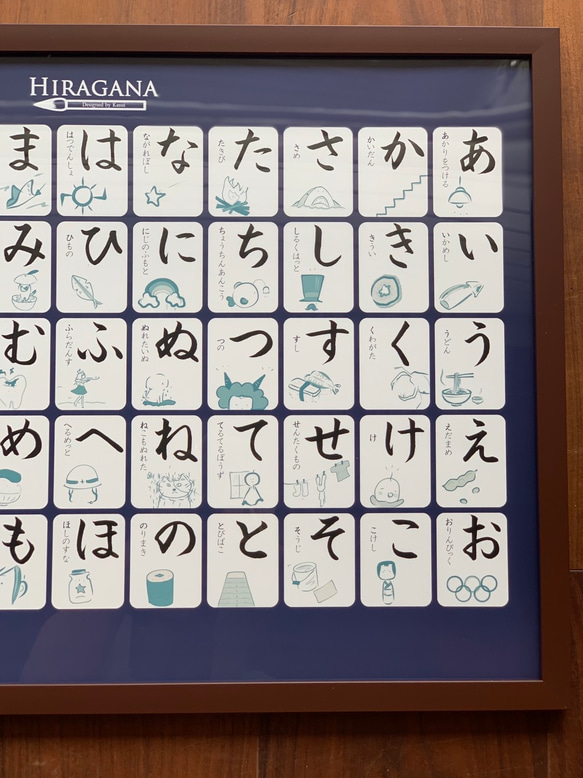 HIRAGANA
Designed by Kanri
あ
あかりをつける
い
いかめし
う
うどん
え
えだまめ
お
おりんぴっく
か
かいだん
き
きうい
く
くわがた
け
け
こ
こけし
さ
さめ
し
しるくはっと
す
すし
せ
せんたくもの
そ
そうじ
た
たきび
ち
ちょうちんあんこう
つ
つの
て
てるてるぼうず
と
とびばこ
な
ながれぼし
に
にじのふもと
ぬ
ぬれたいぬ
ね
ねこもぬれた
の
のりまき
は
はつでんしょ
ひ
ひもの
ふ
ふらだんす
へ
へるめっと
ほ
ほしのすな
ま
み
む
め
も